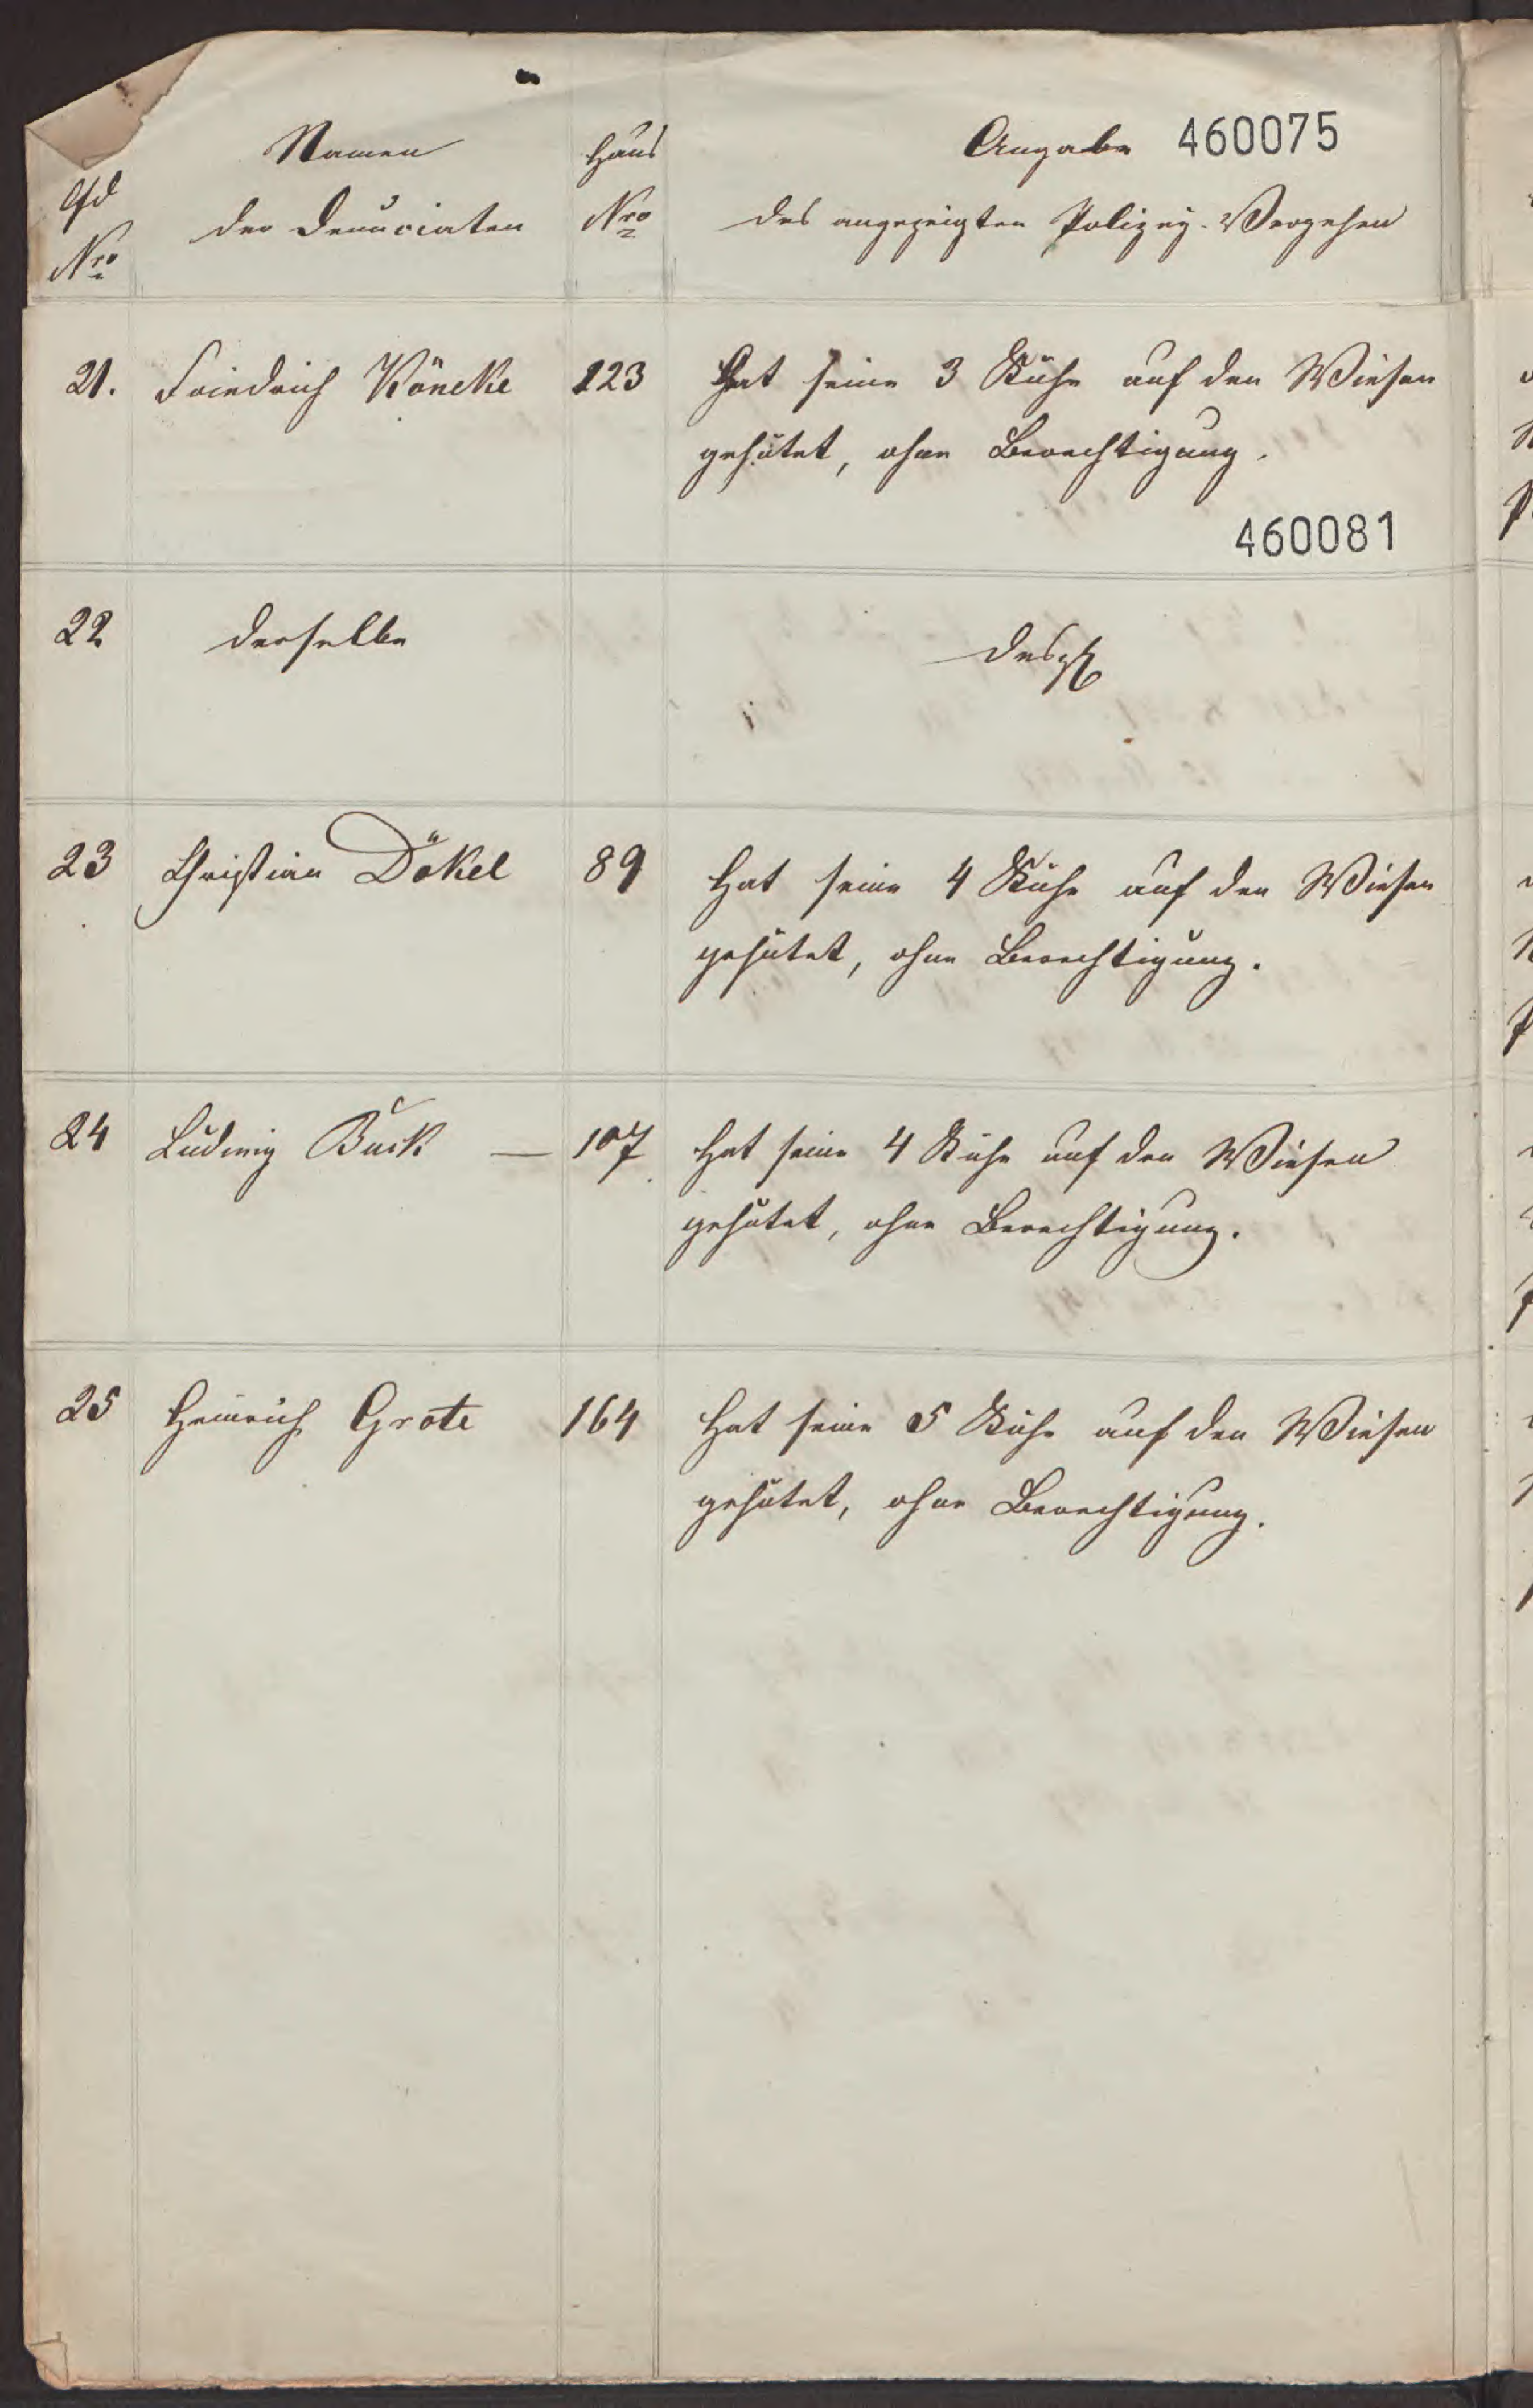 Namen Haus Angabe 460075
lfd
der Denunciaten Nro des angezeigten Polizey-Vergehen
Nro
21. Friedrich Köneke 123 Hat seine 3 Kühe auf den Wiesen
gehütet, ohne Berechtigung.
460081
22 derselbe desgl
23 Christian Dökel 89 Hat seine 4 Kühe auf den Wiesen
gehütet, ohne Berechtigung.
24 Ludwig Buck — 107 Hat seine 4 Kühe auf den Wiesen
gehütet, ohne Berechtigung.
25 Heinrich Grote 164 Hat seine 5 Kühe auf den Wiesen
gehütet, ohne Berechtigung.